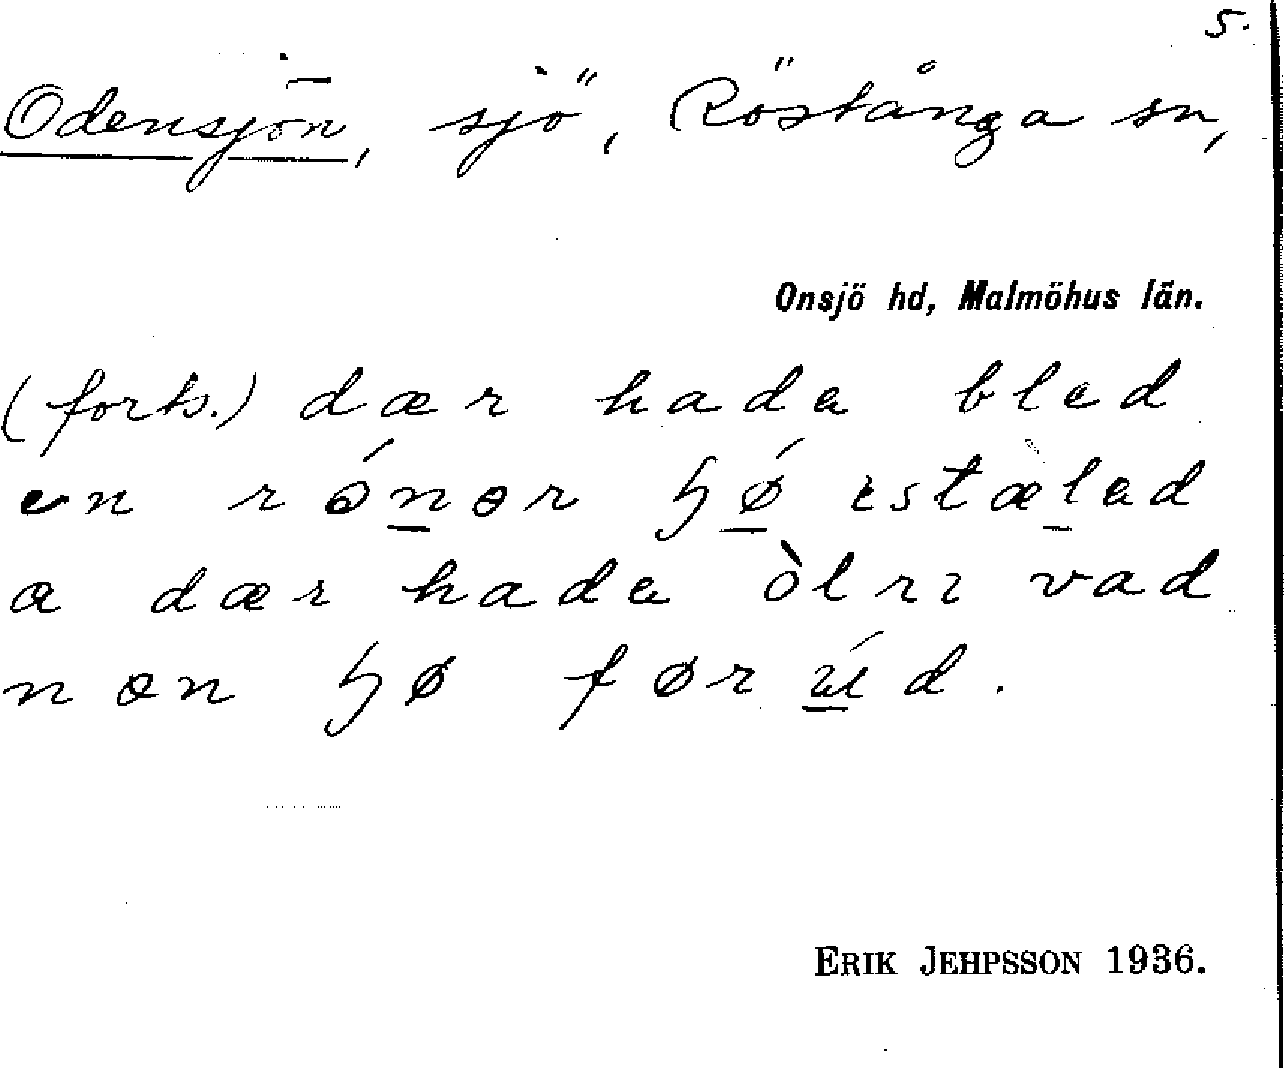 5.
Odensjön, sjö, Röstånga sn,
Onsjö hd, Malmöhus län.
(forts.) dær hada bled
en rónər ɧǿ istæ̀led
a dær hada òlrı vad
nən ɧø førúd.
ERIK JEHPSSON 1936.